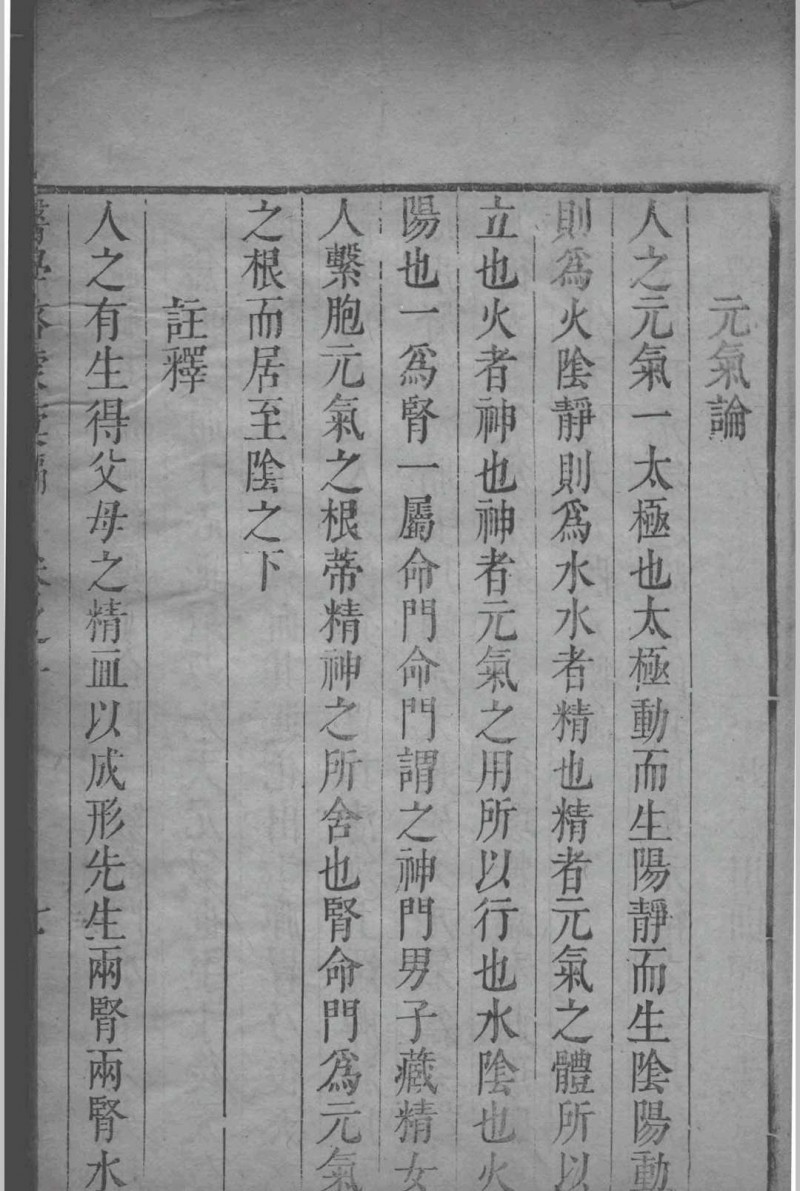 元氣論
人之元氣一太極也太極動而生陽靜而生陰陽動
則爲火陰靜則爲水水者精也精者元氣之體所以
立也火者神也神者元氣之用所以行也水陰也火
陽也一爲腎一屬命門命門謂之神門男子藏精女
人繫胞元氣之根蒂精神之所舍也腎命門爲元氣
之根而居至陰之下
註釋
人之有生得父母之精血以成形先生兩腎兩腎水